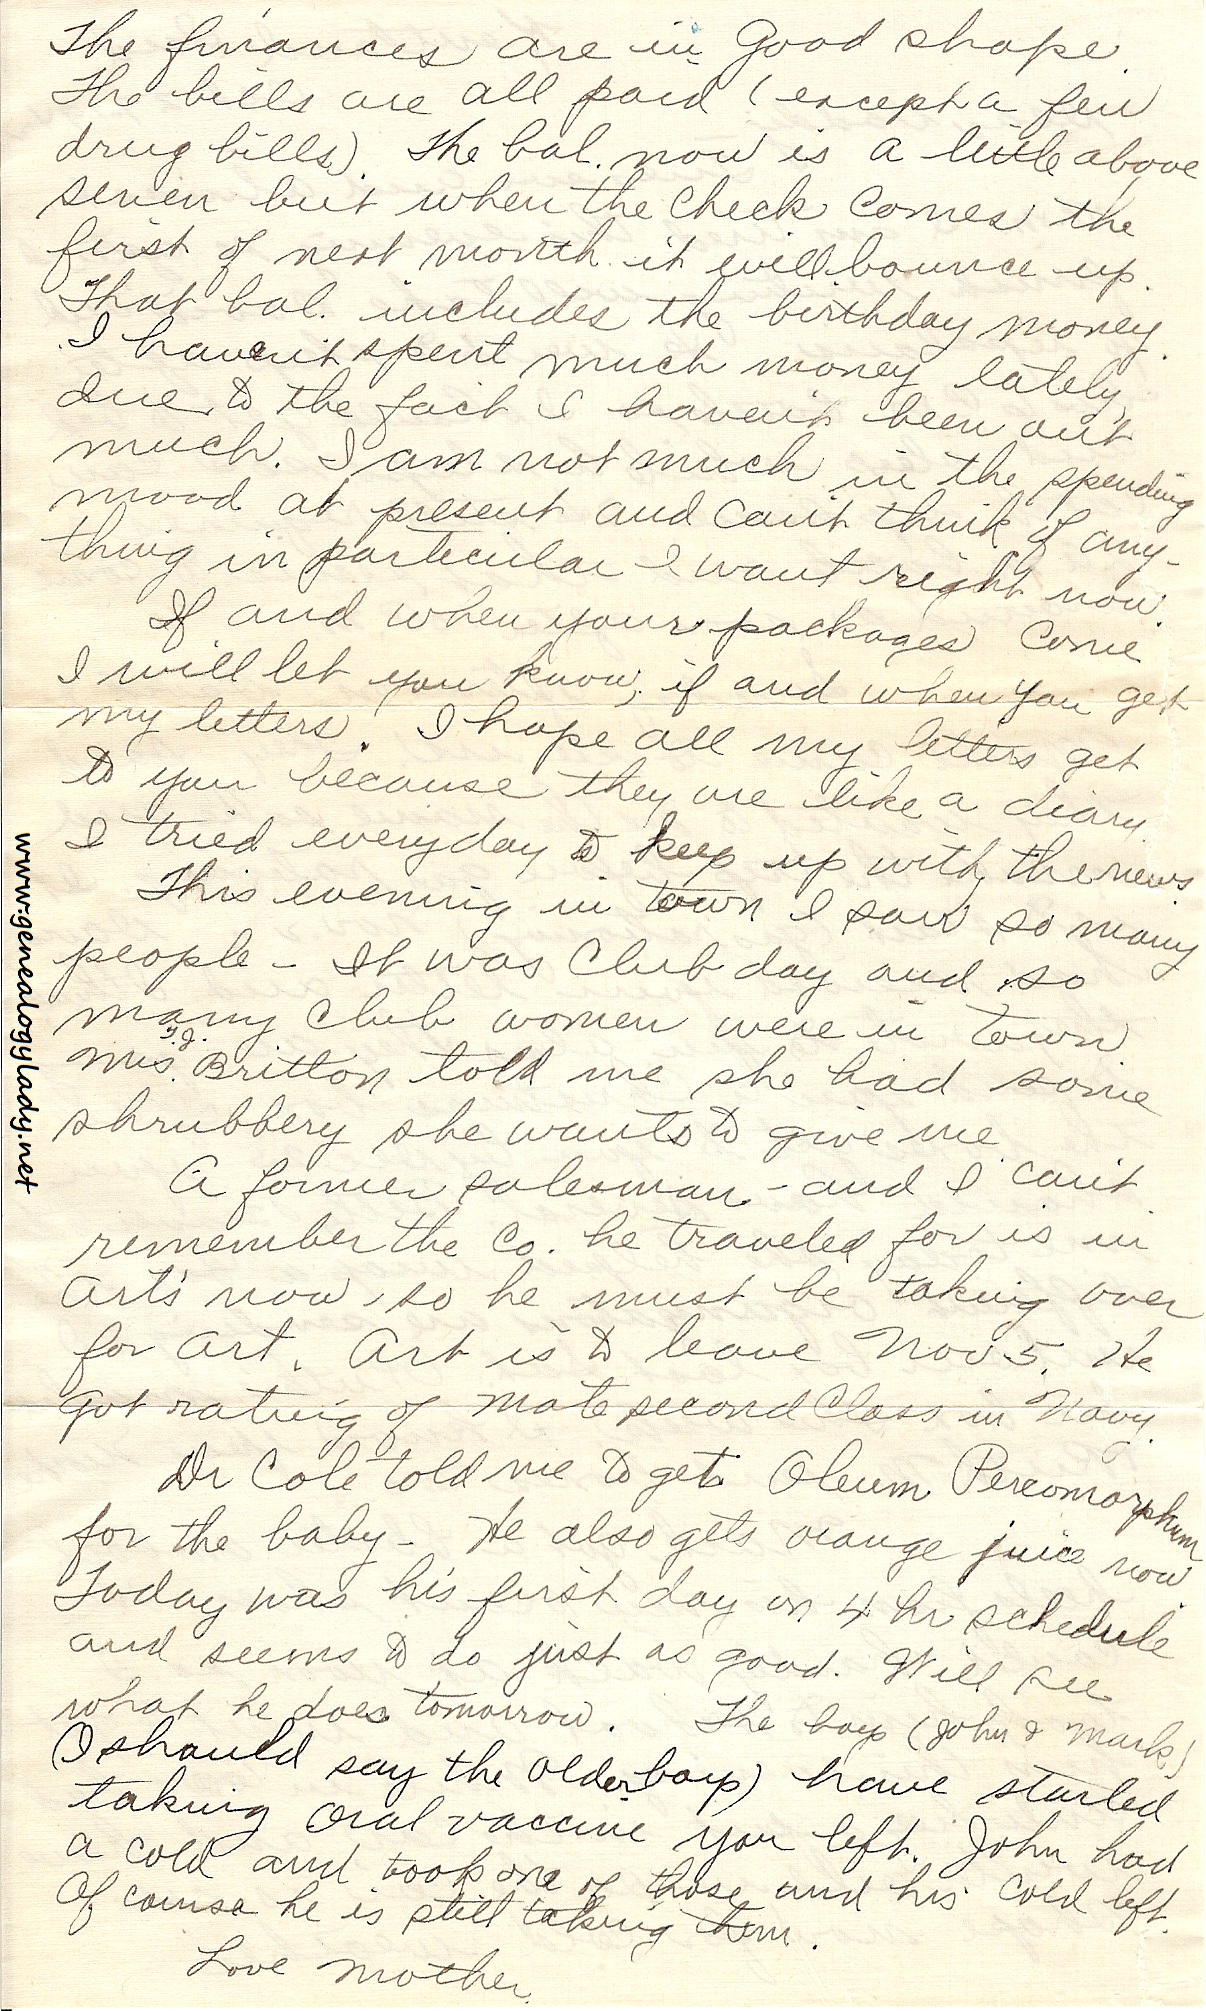 The finances are in Good shape.
The bills are all paid (except a few
drug bills). The bal. now is a little above
seven but when the check comes the
first of next month it will bounce up.
That bal. includes the birthday money.
I haven't spent much money lately,
due to the fact I haven't been out
much. I am not much in the spending
mood at present and can't think of any-
thing in particular I want right now.
If and when your packages come
I will let you know, if and when you get
my letters. I hope all my letters get
to you because they are like a diary
I tried everyday to keep up with the news
This evening in town I saw so many
people - It was Club day and so
many Club women were in town.
Mrs. T.J. Britton told me she had some
shrubbery she wants to give me
A former salesman - and I can't
remember the Co. he traveled for is in
Art's now, so he must be taking over
for Art. Art is to leave Nov 5. He
got rating of mate second Class in Navy.
Dr Cole told me to get Oleum Percomorphum
for the baby - He also gets orange juice now
Today was his first day on 4 hr schedule
and seems to do just as good. Will see
what he does tomorrow. The boys (John & Mark)
(I should say the older boys) have started
taking Oral vaccine you left. John had
a cold and took one of those and his cold left.
Of course he is still taking them.
Love Mother.
www.genealogylady.net